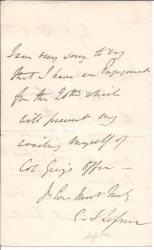 I am very sorry to say
that I have an Engagement
for the 20th which
will prevent my
availing myself of
Col Grey's offer —